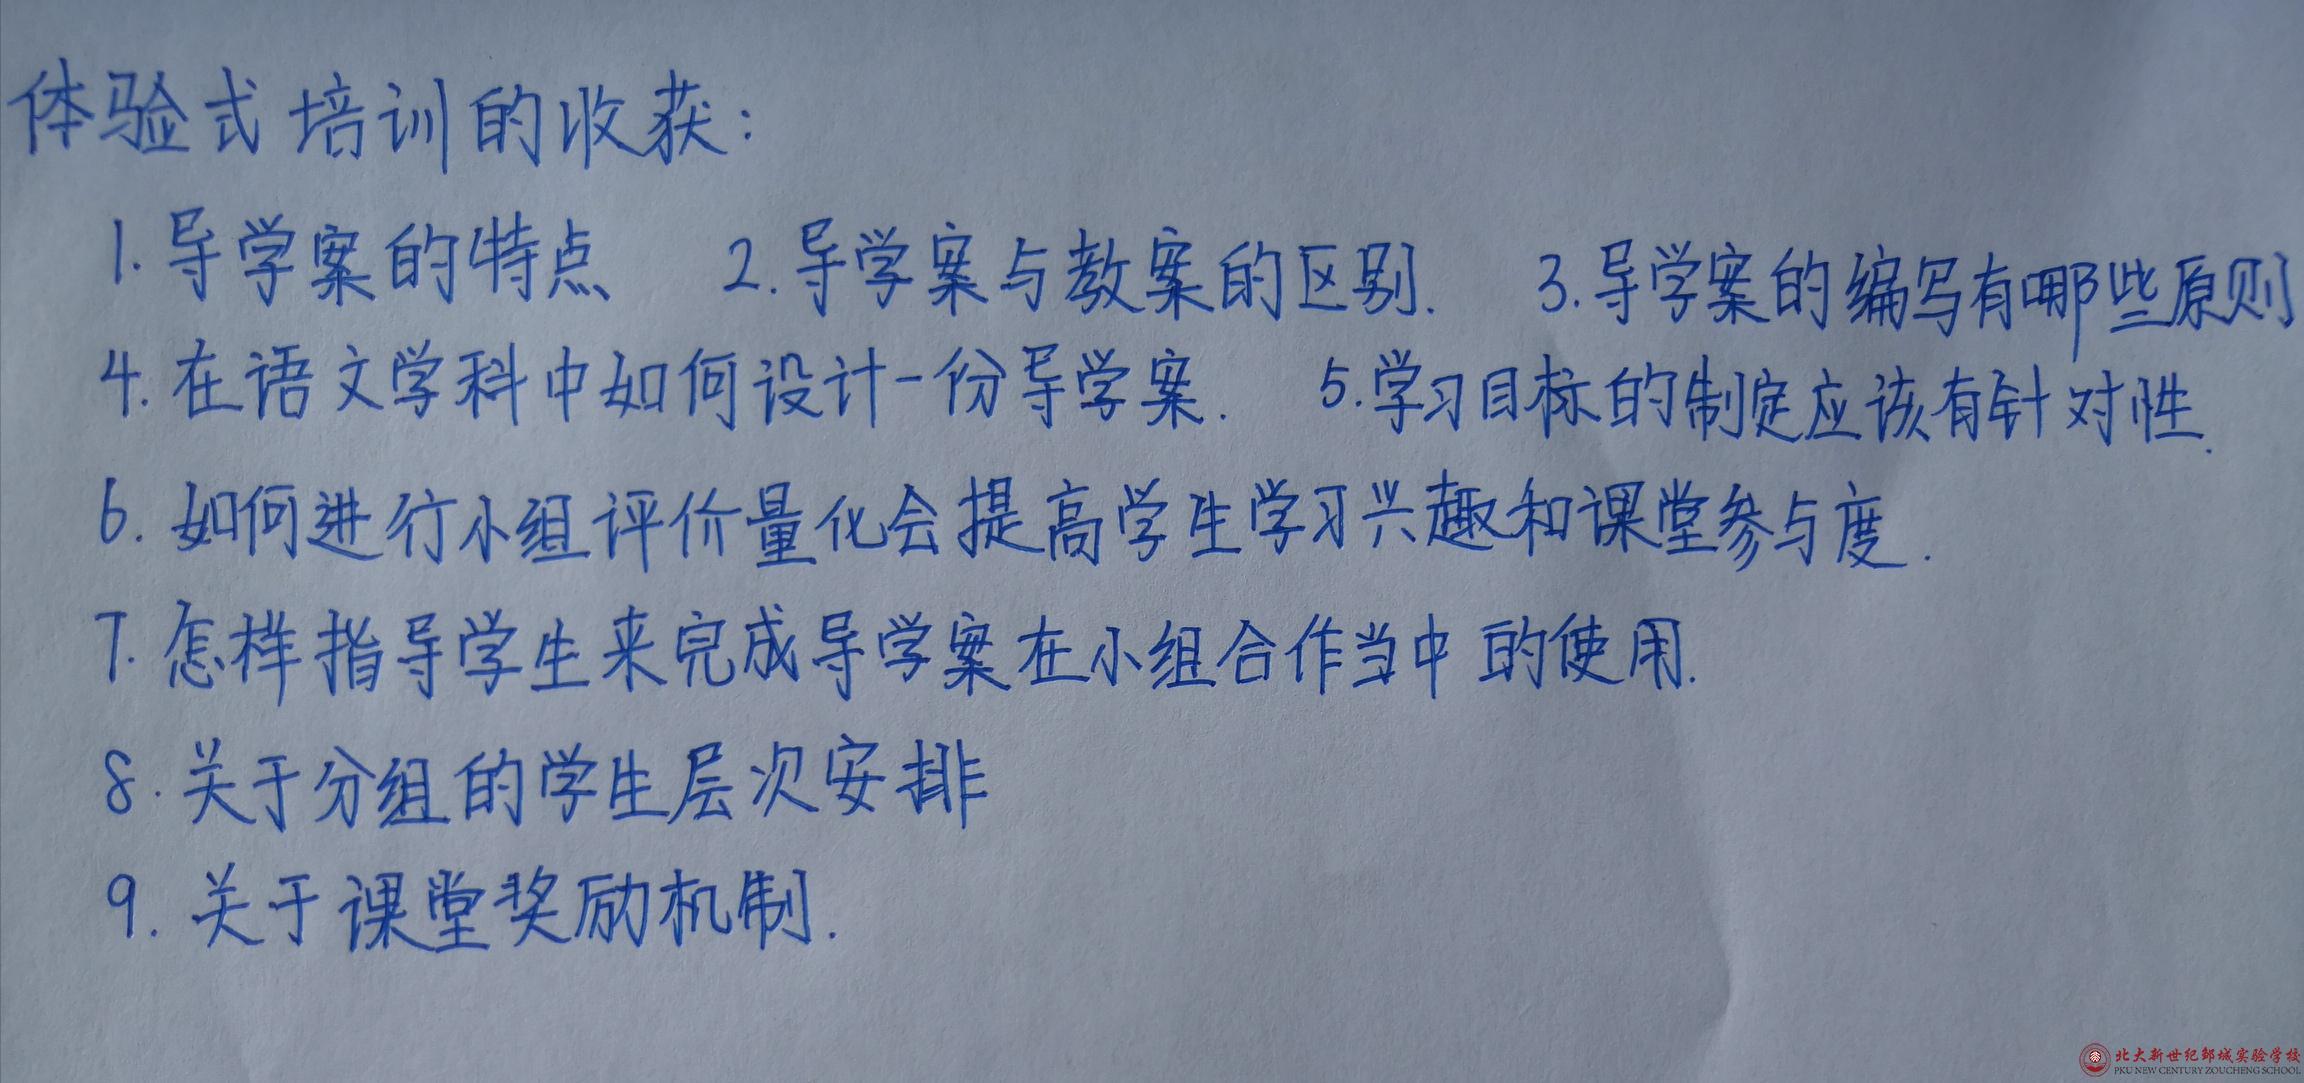 体验式培训的收获:
1.导学案的特点 2.导学案与教案的区别. 3.导学案的编写有哪些原则
4.在语文学科中如何设计一份导学案. 5.学习目标的制定应该有针对性.
6.如何进行小组评价量化会提高学生学习兴趣和课堂参与度.
7.怎样指导学生来完成导学案在小组合作当中的使用.
8.关于分组的学生层次安排
9.关于课堂奖励机制.
北大新世纪邹城实验学校
PKU NEW CENTURY ZOUCHENG SCHOOL